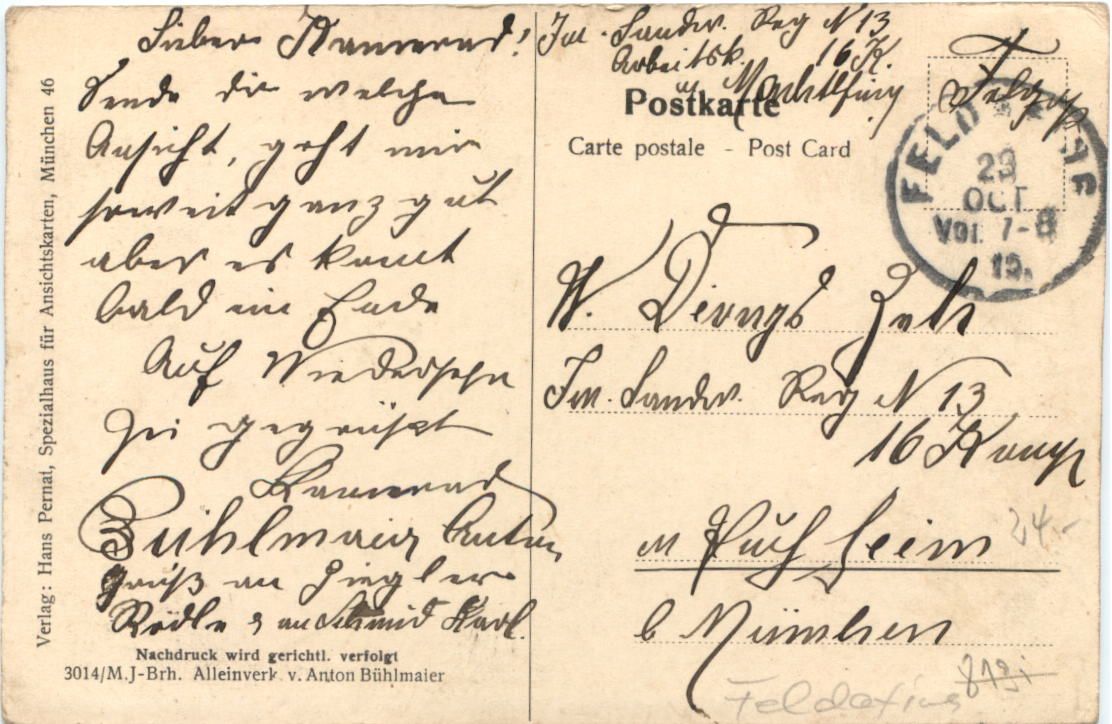 Lieber Kamerad!
Sende dir welche
Ansicht, geht mir
soweit ganz gut
aber es komt
bald ein Ende
Auf Wiedersehn
sei gegrüßt
Kamerad
Bühlmaier Anton
Gruß an Ziegler
Rödle & an Schmid Karl.
Nachdruck wird gerichtl. verfolgt
3014/M.J-Brh. Alleinverk. v. Anton Bühlmaier
Verlag: Hans Pernat, Spezialhaus für Ansichtskarten, München 46
Inf. Landw. Reg N 13
Arbeitsk. 16 K.
in
Postkarte
Carte postale - Post Card
Feldp
FELD
23
OCT
Vor. 7-8
19
W.
Inf. Landw. Reg N 13
16 Komp
in Puchheim
b München
24.-